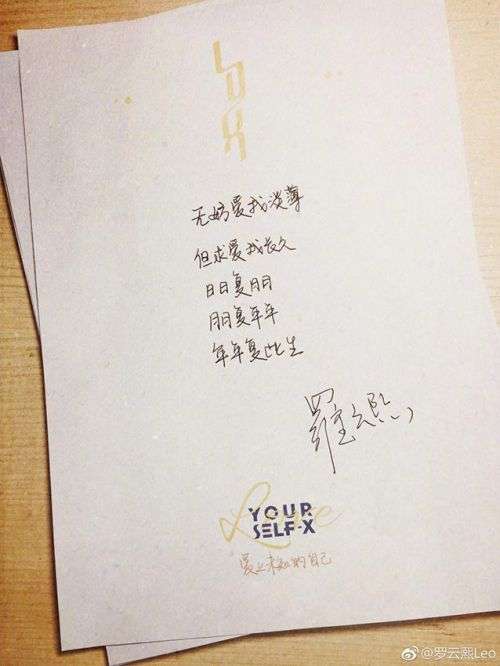 LYX
无妨爱我淡薄
但求爱我长久
日日复月月
月月复年年
年年复此生
羅云熙
Love
YOUR
SELF-X
爱上未知的自己
@罗云熙Leo